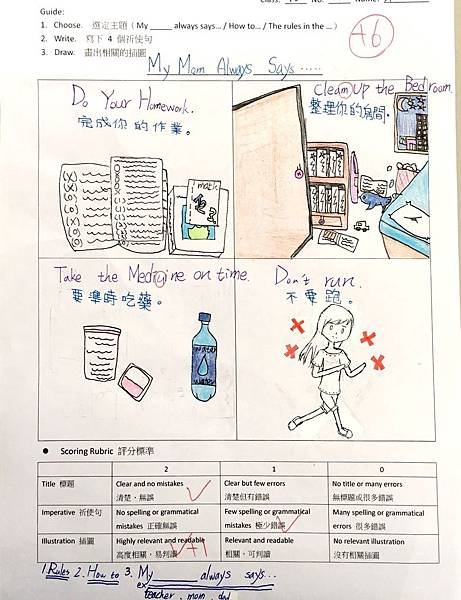 Guide:
1. Choose. 選定主題 ( My _____ always says… / How to… / The rules in the … )
2. Write. 寫下 4 個祈使句
3. Draw. 畫出相關的插圖
+6
My Mom Always Says .....
Do Your Homework.
完成你的作業。
math
Clean up the Bedroom.
整理你的房間。
Take the Medicine on time.
要準時吃藥。
water
Don't run.
不要跑。
● Scoring Rubric 評分標準
2 1 0
Title 標題 Clear and no mistakes 清楚,無誤 Clear but few errors 清楚但有錯誤 No title or many errors 無標題或很多錯誤
Imperative 祈使句 No spelling or grammatical mistakes 正確無誤 Few spelling or grammatical mistakes 極少錯誤 Many spelling or grammatical errors 很多錯誤
Illustration 插圖 Highly relevant and readable 高度相關,易判讀 Relevant and readable 相關,可判讀 No relevant illustration 沒有相關插圖
+1
1. Rules 2. How to 3. My _____ always says...
ex teacher, mom, dad